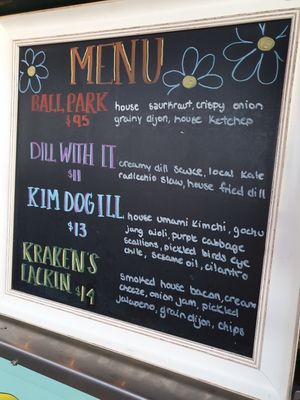 MENU
BALL PARK
$9.5
house saurkraut, crispy onion
grainy dijon, house ketchep
DILL WITH IT
$11
creamy dill sauce, local kale
radicchio slaw, house fried dill
KIM DOG ILL
$13
house umami kimchi, gochu
jang aioli, purple cabbage
scallions, pickled birds eye
chile, sesame oil, cilantro
KRAKEN'S
LACKIN $14
smoked house bacon, cream
cheeze, onion jam, pickled
jalapeno, grain dijon, chips